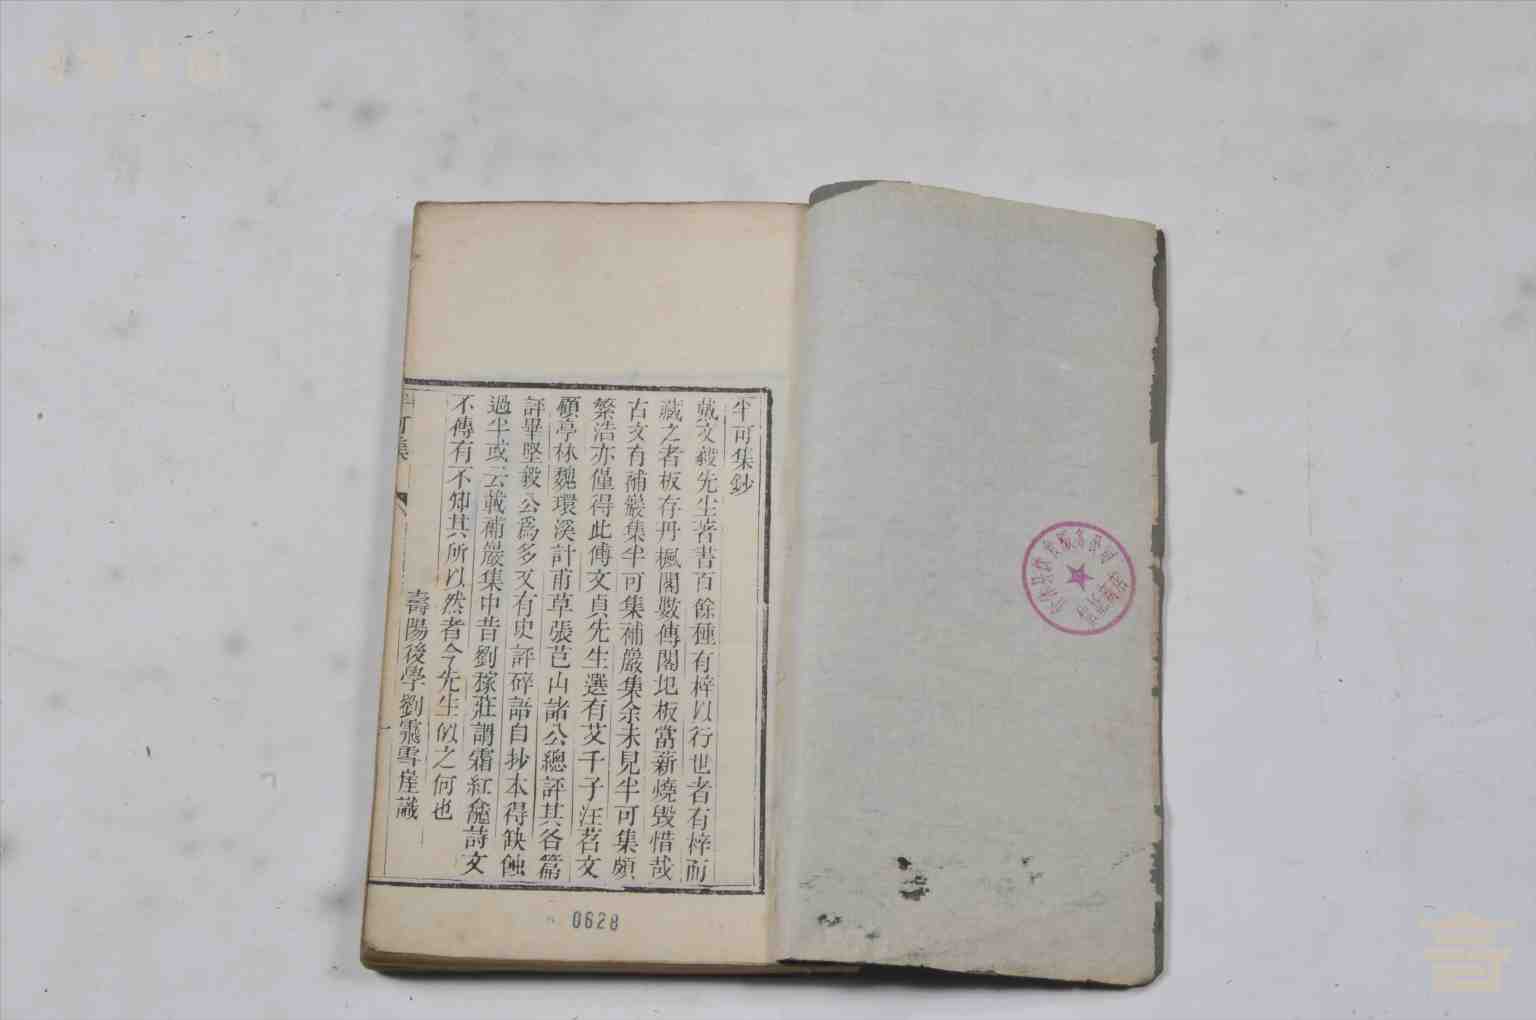 半可集鈔
戴文毅先生著書百餘種有梓以行世者有梓而
藏之者板存丹楓閣數傳閣圮板當薪燒毀惜哉
古文有補巖集半可集補巖集余未見半可集頗
繁浩亦僅得此傅文貞先生選有艾千子汪苕文
顧亭林魏環溪計甫草張芑山諸公總評其各篇
評畢堅毅公爲多又有史評碎語自抄本得缺蝕
過半或云載補巖集中昔劉稼莊謂霜紅龕詩文
不傳有不知其所以然者今先生似之何也
壽陽後學劉霏雪崖識
半可集
一
0628